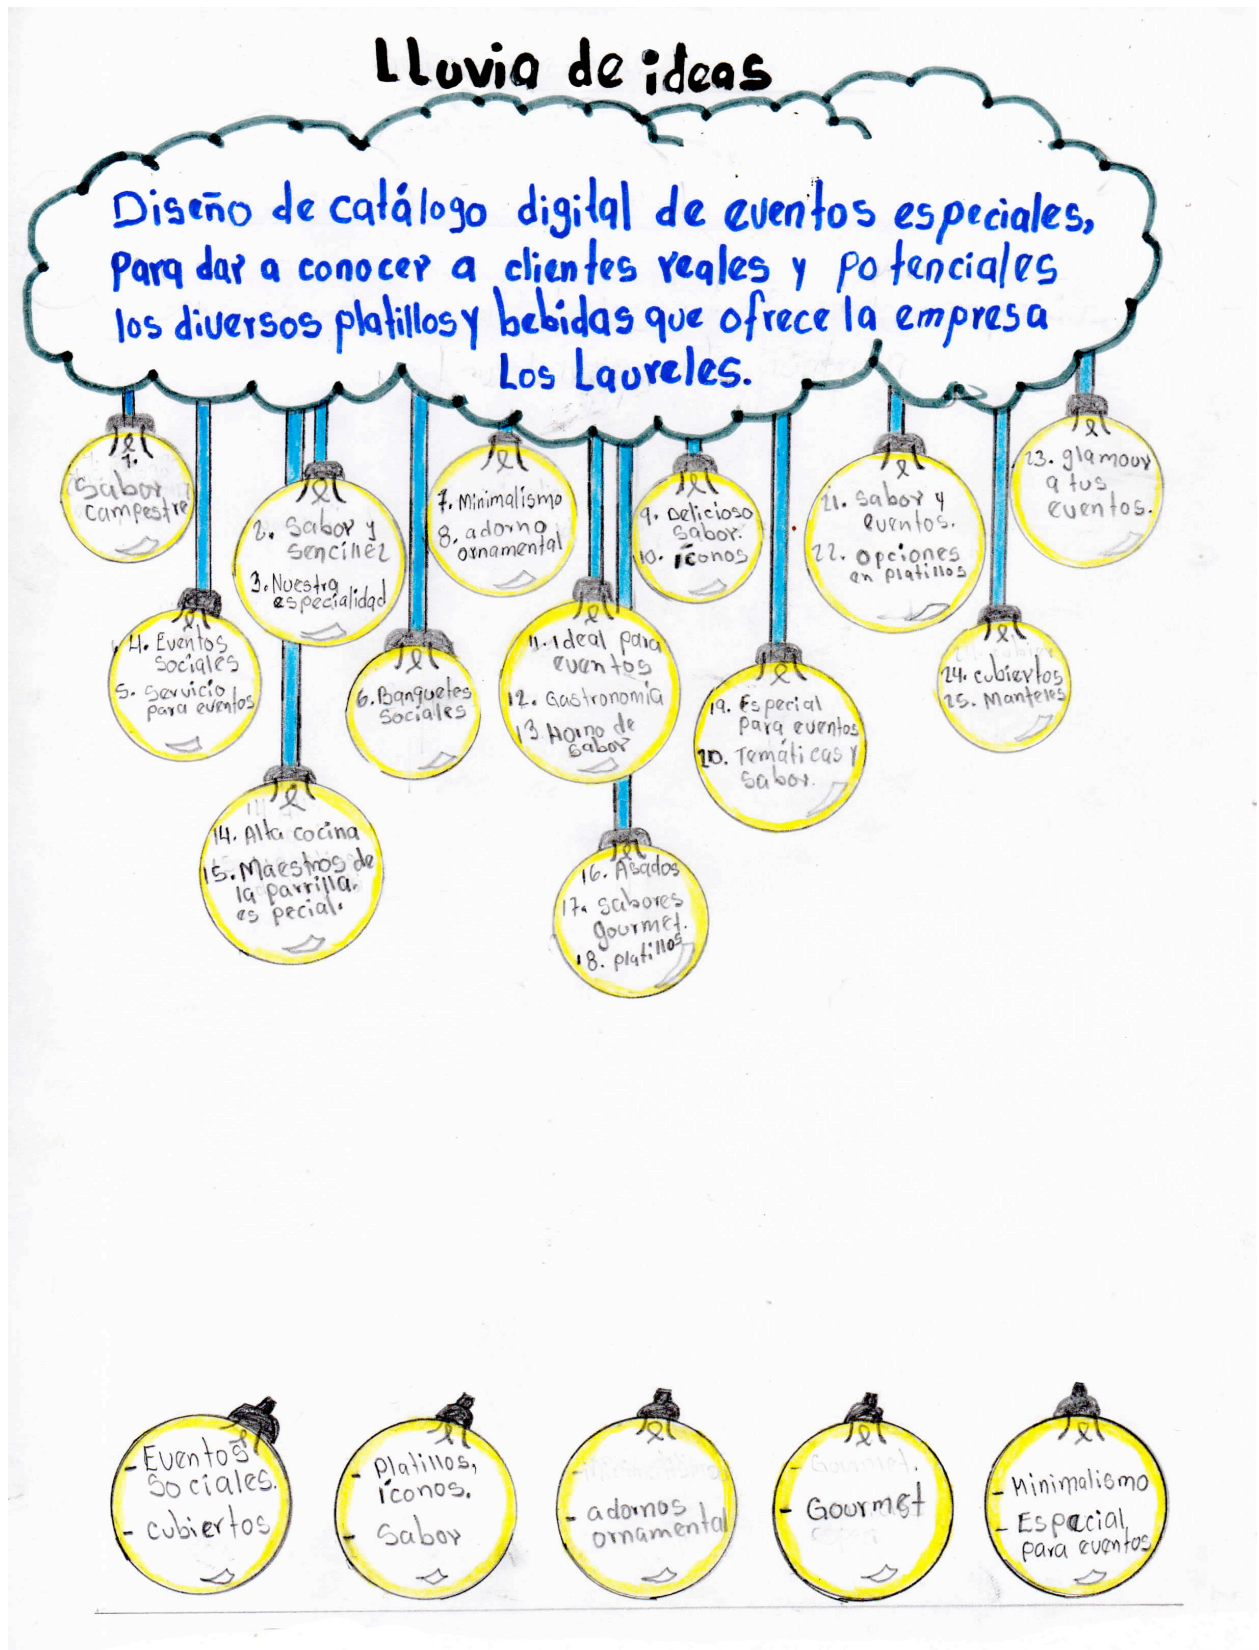 Lluvia de ideas
Diseño de catálogo digital de eventos especiales,
Para dar a conocer a clientes reales y potenciales
los diversos platillos y bebidas que ofrece la empresa
Los Laureles.
1.
Sabor
campestre
2. Sabor y
sencillez
3. Nuestra
especialidad
4. Eventos
Sociales
5. Servicio
para eventos
6. Banquetes
sociales
7. Minimalismo
8. adorno
ornamental
9. Delicioso
sabor.
10. íconos
11. Ideal para
eventos
12. Gastronomía
13. Horno de
sabor
14. Alta cocina
15. Maestros de
la parrilla.
es pecial.
16. Asados
17. Sabores
gourmet.
18. platillos
19. Especial
para eventos
20. Temáticas y
sabor.
21. Sabor y
eventos.
22. Opciones
en platillos
23. glamour
a tus
eventos.
24. cubiertos
25. Manteles
- Eventos
Sociales.
- cubiertos
- Platillos,
íconos.
- Sabor
- adornos
ornamental
- Gourmet
- Minimalismo
- Especial
para eventos